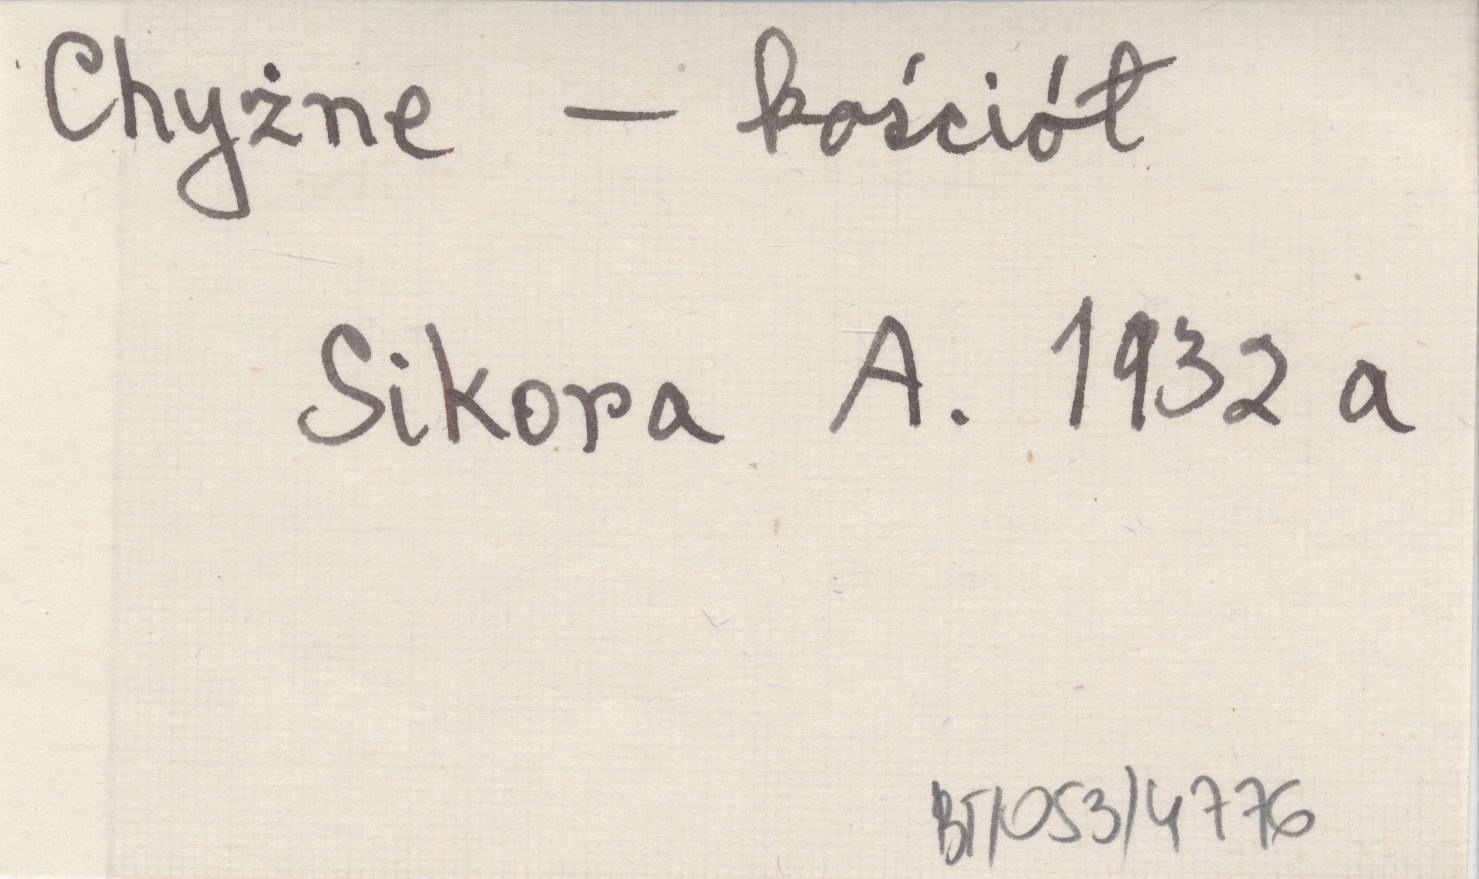 Chyżne – kościół
Sikora A. 1932 a
BT/053/4776